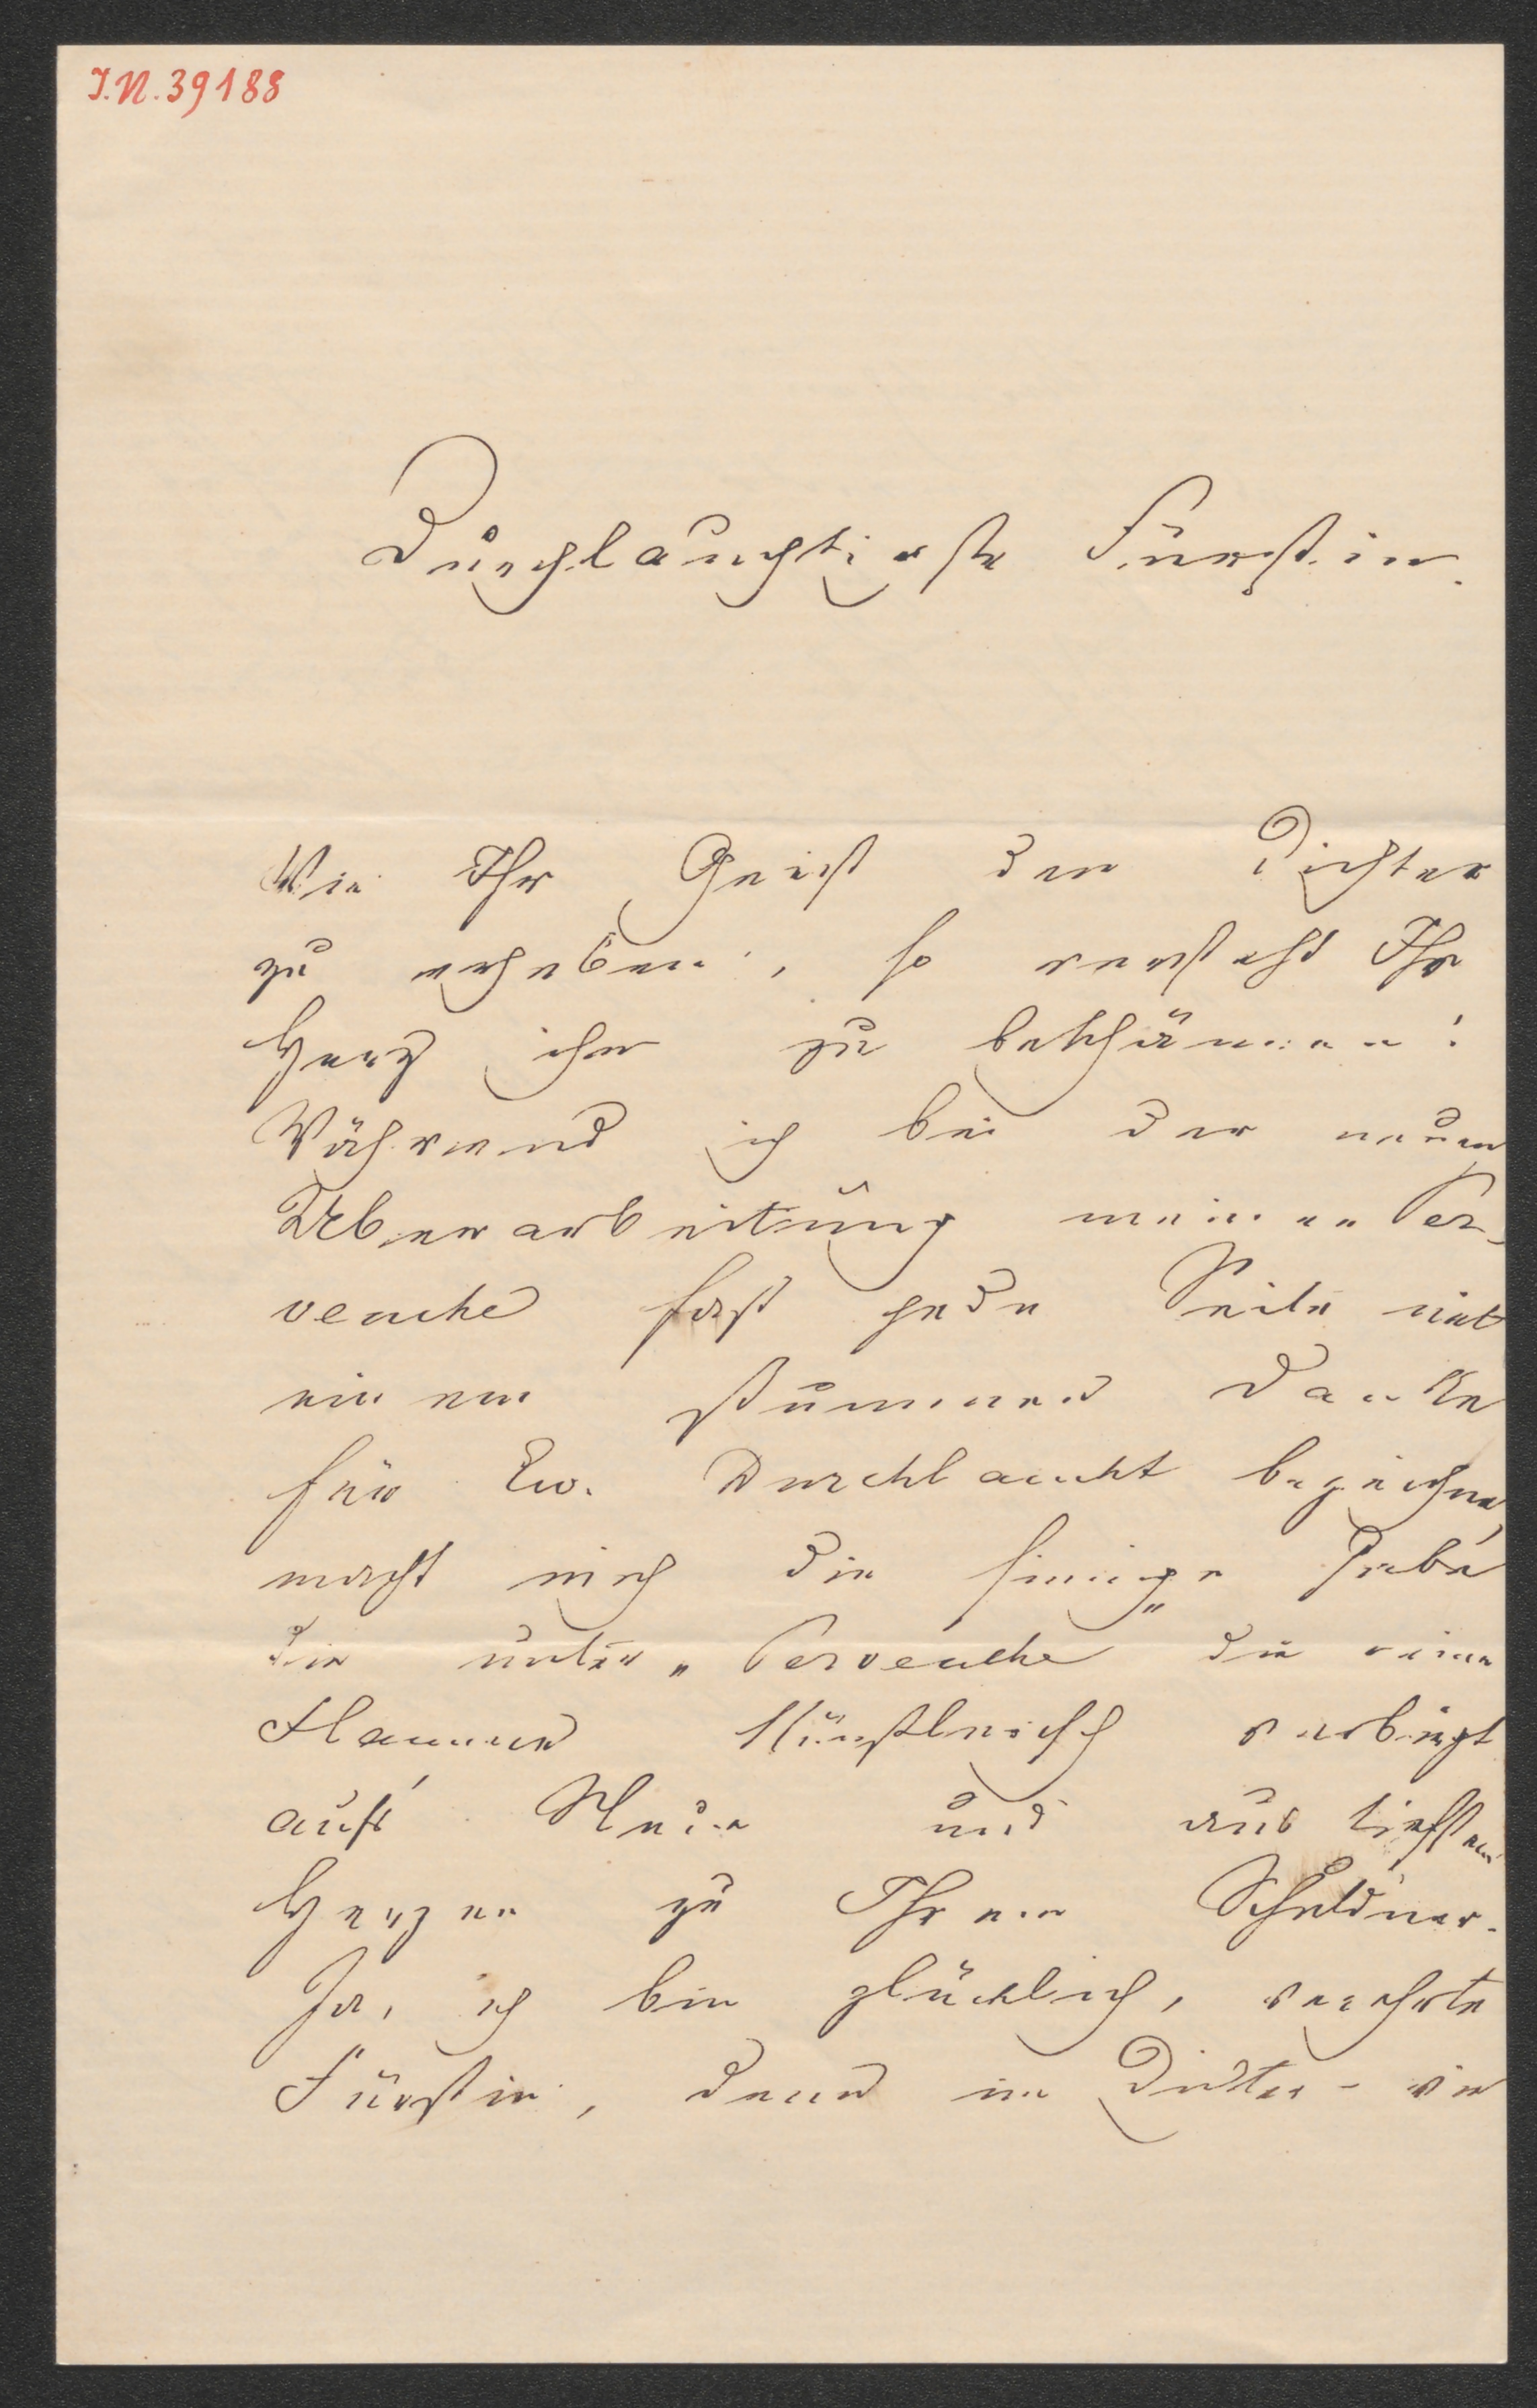 I.N. 39188
Durchlauchtigste Fürstin.
Wie Ihr Geist den Dichter
zu erheben, so versteht Ihr
Herz ihn zu beschämen!
Während ich bei der neuen
Ueberarbeitung meiner Per-
venche fast jede Seite mit
einem stummen Danke
für Ew. Durchlaucht bezeichne,
macht mich die sinnige Gabe
die unter „Pervenche" die
Flammen künstlerisch verbirgt
aufs Neue und aus tiefstem
Herzen zu Ihrem Schuldner.
Ja, ich bin glücklich, verehrte
Fürstin, denn im Dichter- wie